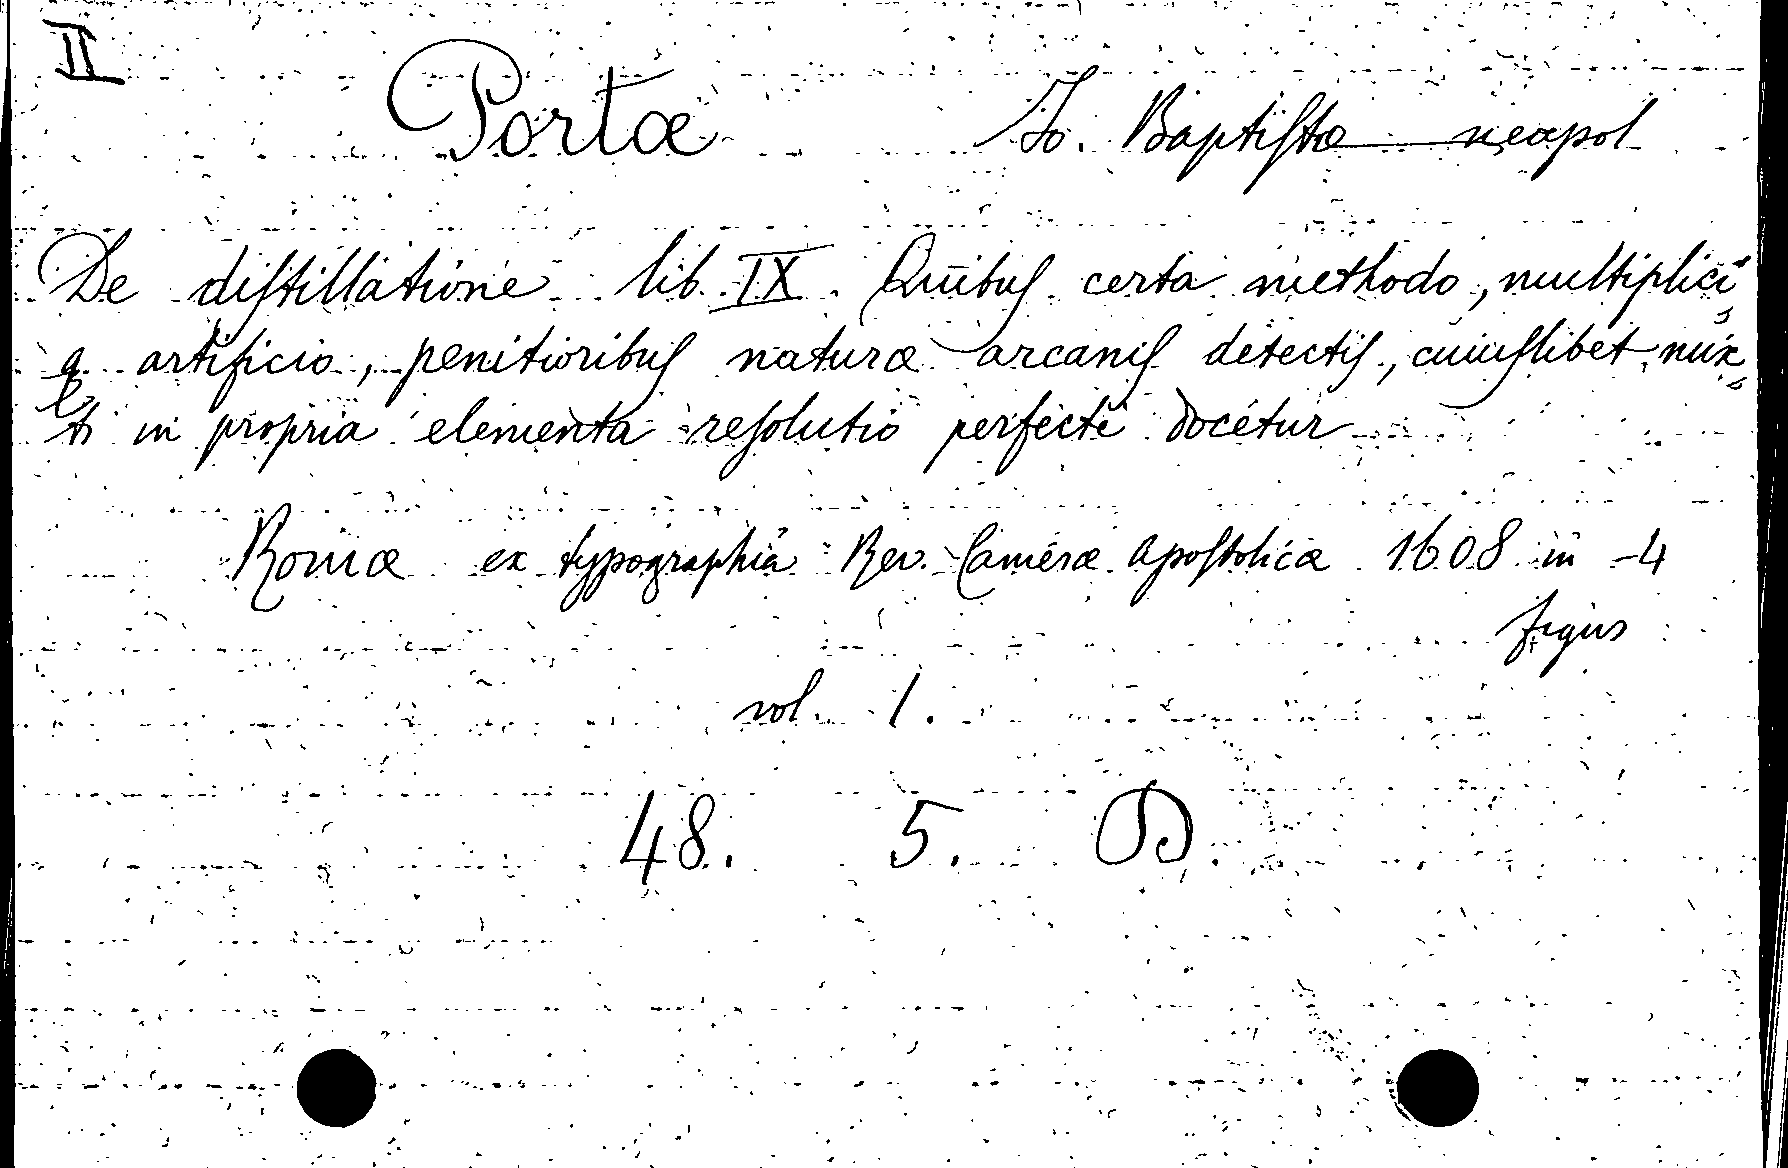 II
Portæ Io. Baptiſtæ neapol
De diſtillatione lib. IX. Quibuſ certa methodo, multiplici
q artificio, penitioribuſ naturæ arcaniſ detectiſ, cuiuſlibet mix=
ti in propria elementa reſolutio perfecte docetur
Romæ ex typographia Rev. Cameræ Apoſtolicæ 1608 in -4
figur
vol 1.
48. 5. D.